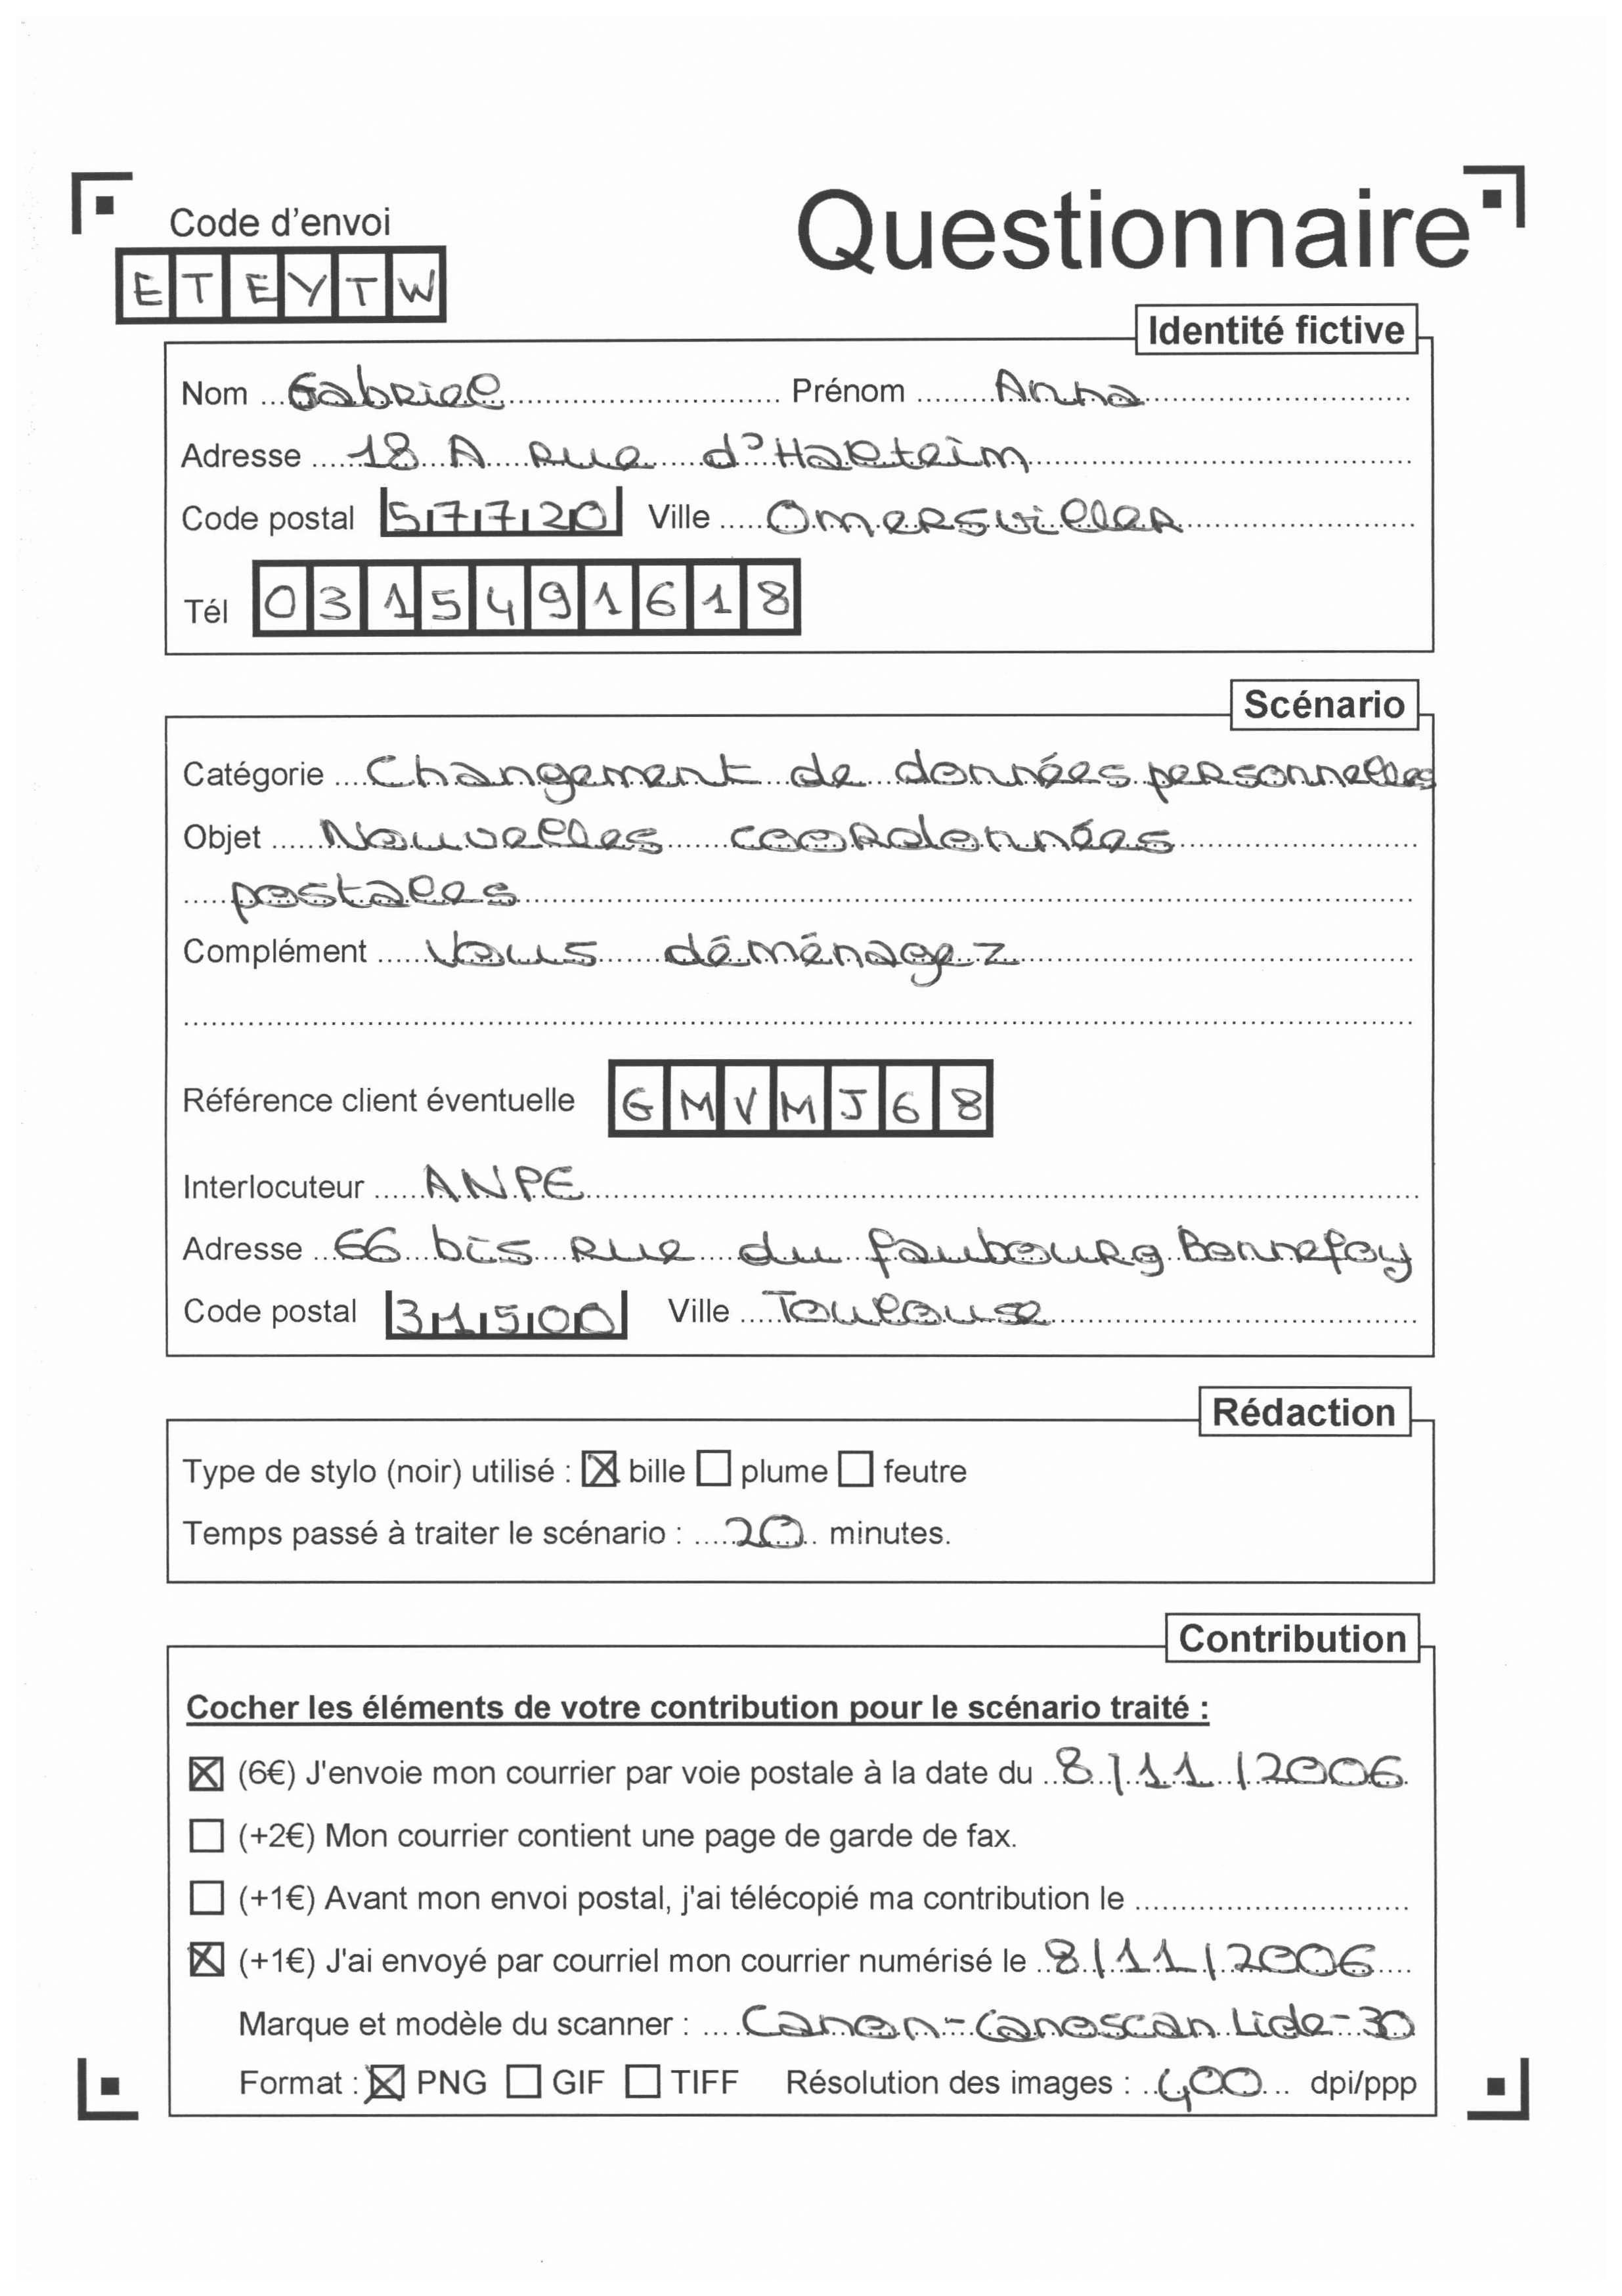 Code d'envoi
Questionnaire
ETEYTW
Identité fictive
Nom Gabriel Prénom Anna
Adresse 18 A Rue d'Halteim
Code postal 57720 Ville Omersviller
Tél 0315491618
Scénario
Catégorie Changement de données personnelles
Objet Nouvelles coordonnées
postales
Complément Vous déménagez
Référence client éventuelle GMVMJ68
Interlocuteur ANPE
Adresse 66 bis Rue du faubourg Bonnefoy
Code postal 31500 Ville Toulouse
Rédaction
Type de stylo (noir) utilisé : ☒ bille ☐ plume ☐ feutre
Temps passé à traiter le scénario : 20 minutes.
Contribution
Cocher les éléments de votre contribution pour le scénario traité :
☒ (6€) J'envoie mon courrier par voie postale à la date du 8/11/2006
☐ (+2€) Mon courrier contient une page de garde de fax.
☐ (+1€) Avant mon envoi postal, j'ai télécopié ma contribution le
☒ (+1€) J'ai envoyé par courriel mon courrier numérisé le 8/11/2006
Marque et modèle du scanner : Canon-Canoscan Lide-30
Format : ☒ PNG ☐ GIF ☐ TIFF Résolution des images : 400 dpi/ppp